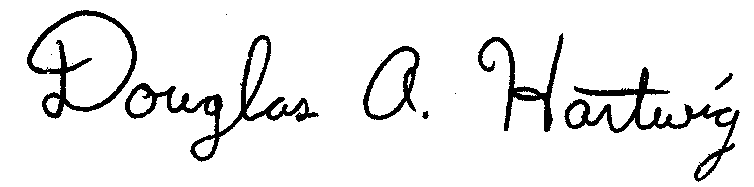 Douglas A. Hartwig